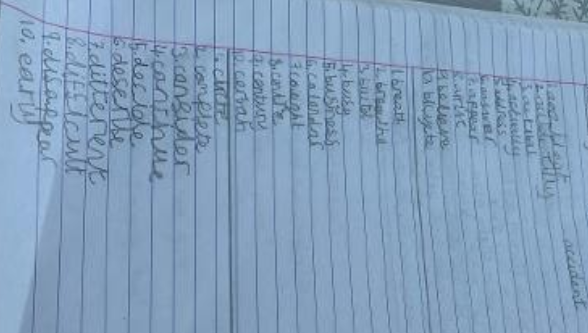 accident
3. actual
4. actually
5. address
6. answer
7. appear
8. arise
9. believe
10. bicycle
1. breath
2. breathe
3. build
4. busy
5. business
6. calendar
7. caught
8. centre
9. century
10. certain
1. circle
2. complete
3. consider
4. continue
5. decide
6. describe
7. different
8. difficult
9. disappear
10. early